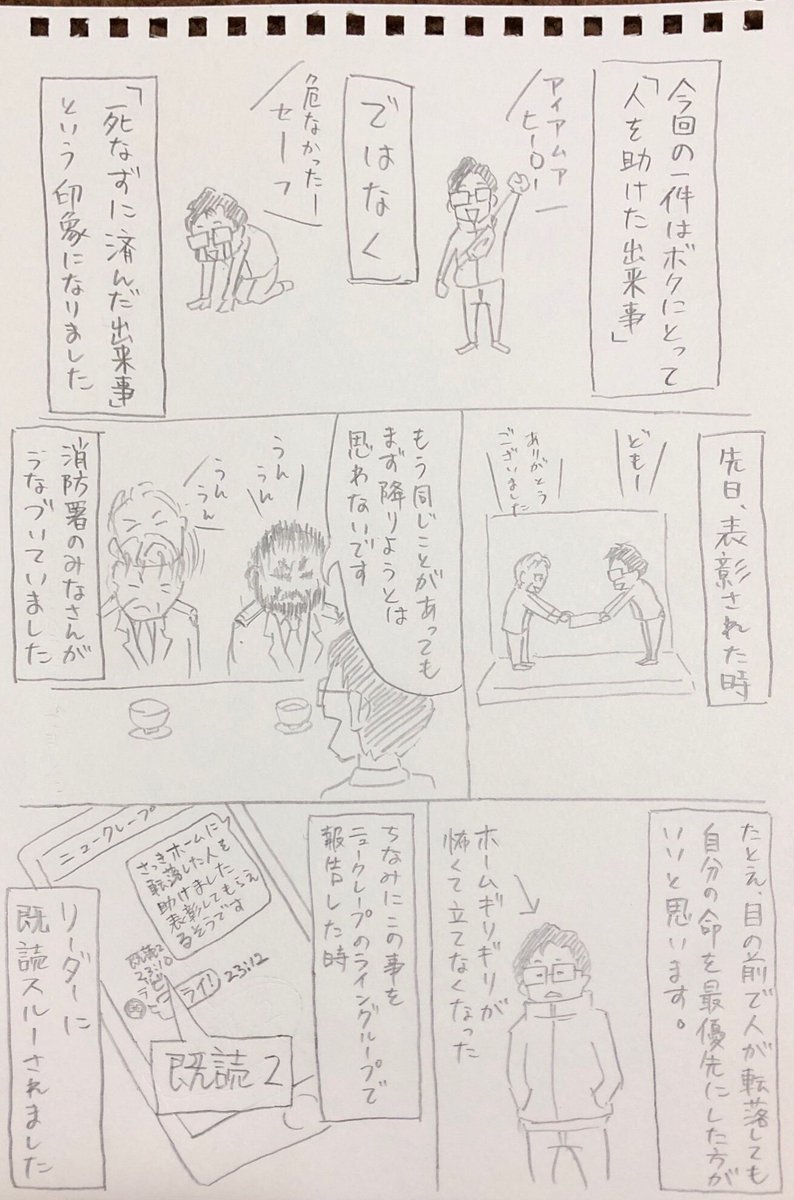 今回の一件はボクにとって
「人を助けた出来事」
アイアムア
ヒーロー
ではなく
危なかったー
セーフ
「死なずに済んだ出来事」
という印象になりました
先日、表彰された時
どもー
ありがとう
ございました
もう同じことがあっても
まず降りようとは
思わないです
うんうん
うんうん
消防署のみなさんが
うなづいていました
たとえ、目の前で人が転落しても
自分の命を最優先にした方が
いいと思います。
ホームギリギリが
怖くて立てなくなった
ちなみにこの事を
ニュークレープのライングループで
報告した時
ニュークレープ
さっきホームに
転落した人を
助けました
表彰してもらえ
るそうです
既読2
23:10
ライ!
23:12
既読2
リーダーに
既読スルーされました